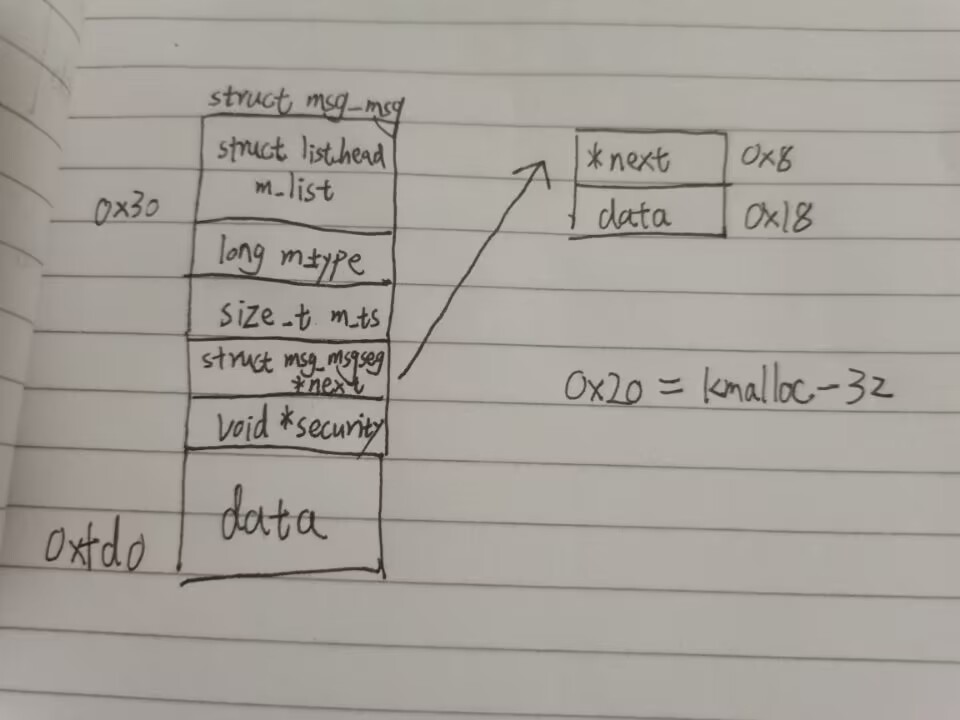 struct msg_msg
struct list_head
m_list
0x30
long m_type
size_t m_ts
struct msg_msgseg
*next
void *security
data
0xfd0
*next 0x8
data 0x18
0x20 = kmalloc-32